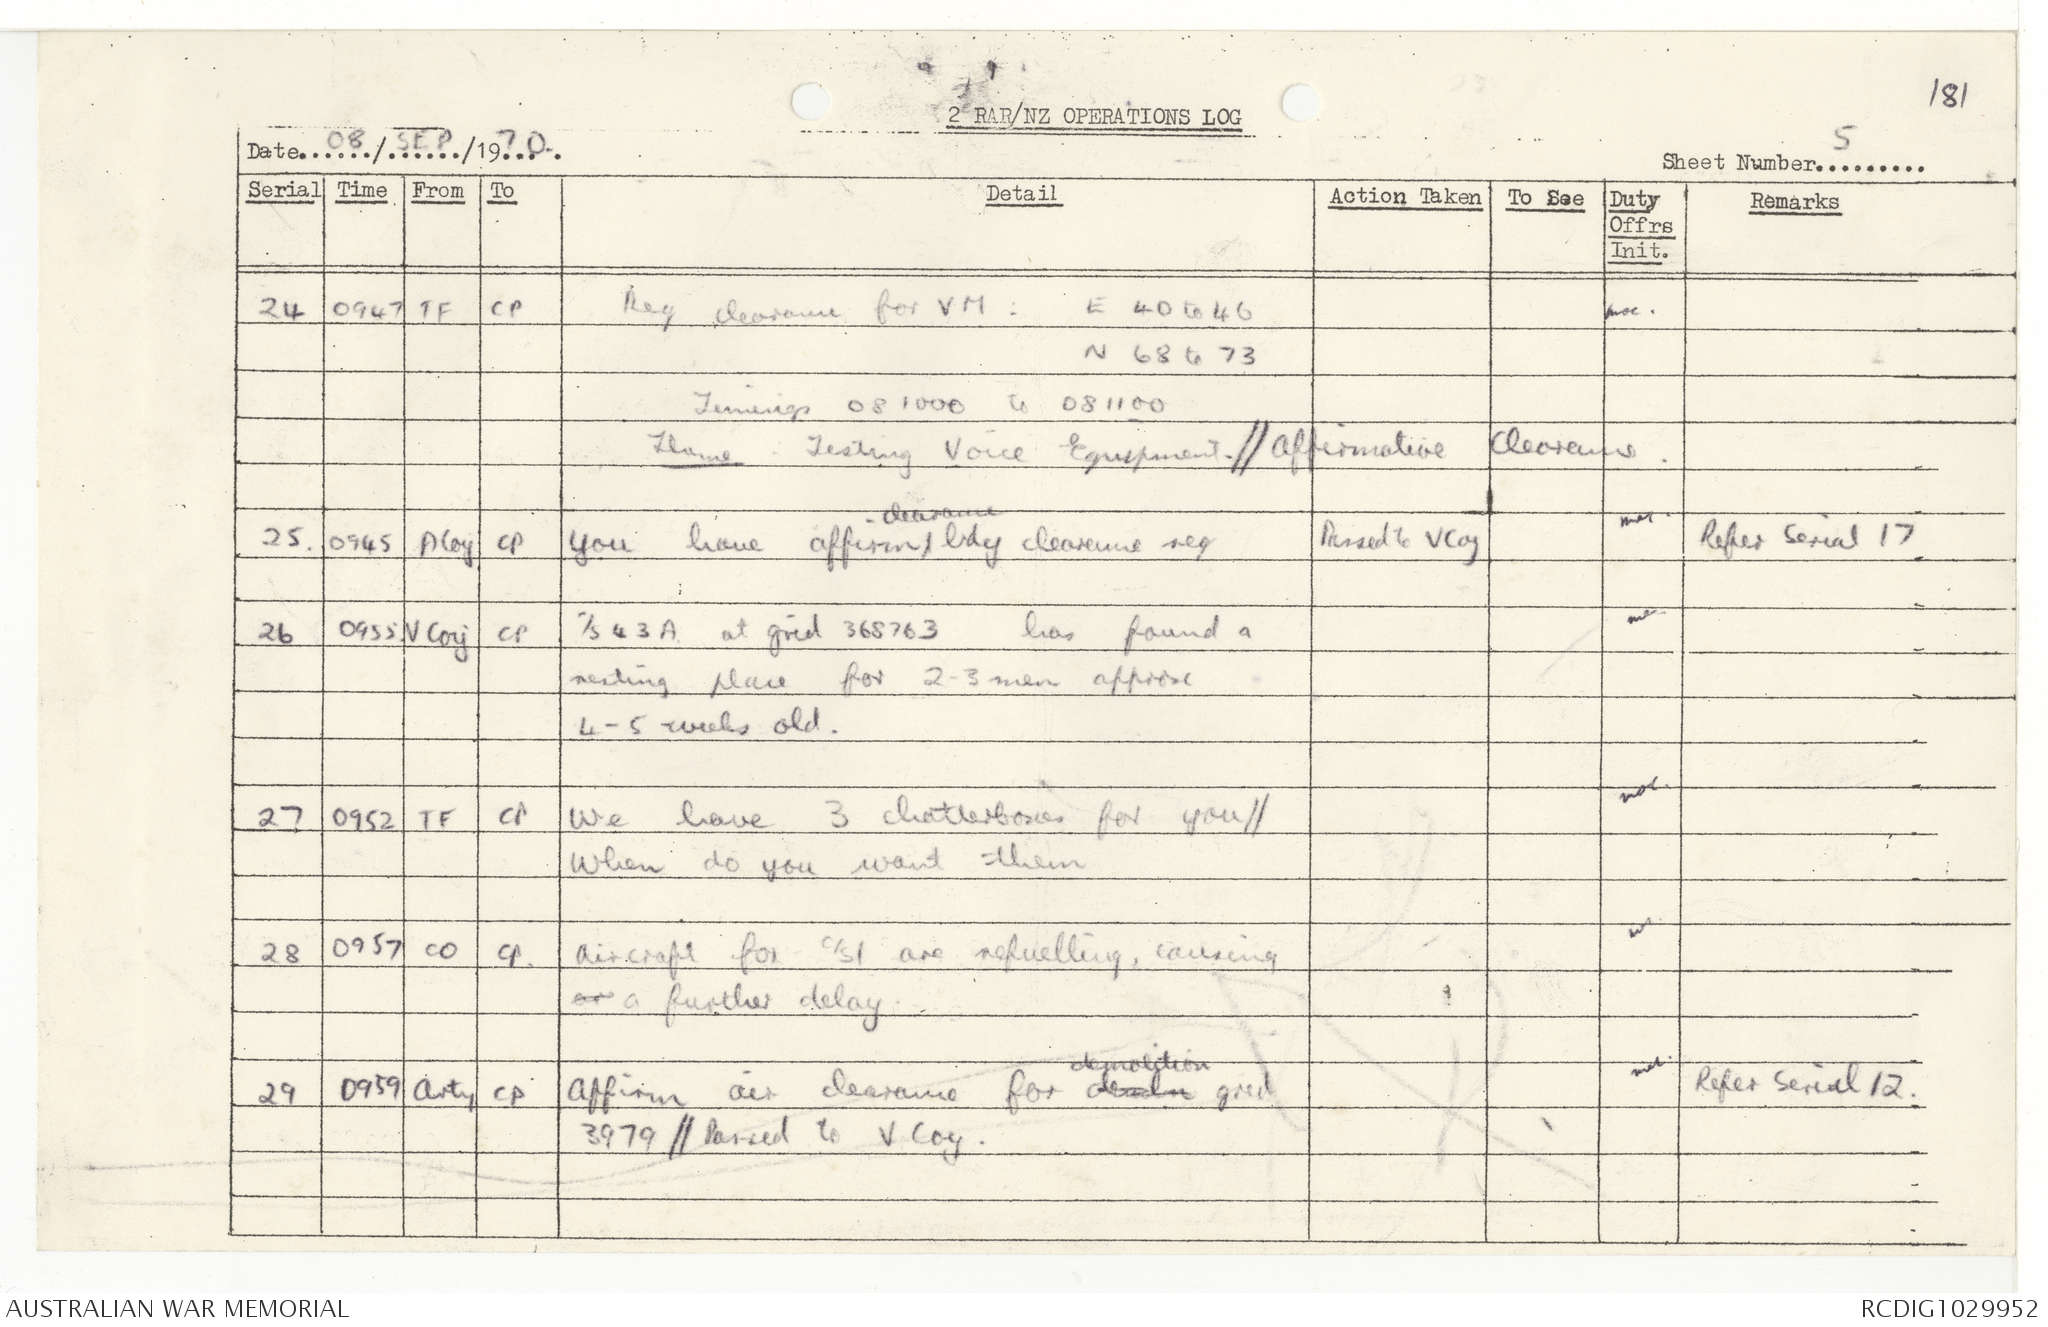 181
2 RAR/NZ OPERATIONS LOG
Date 08/SEP/1970.
Sheet Number 5
Serial Time From To Detail Action Taken To See Duty Offrs Init. Remarks
24 0947 TF CP Req clearance for VM : E 40 to 46
N 68 to 73
Timings 081000 to 081100
Testing Voice Equipment.// Affirmative Clearance.
clearance
25. 0945 A Coy CP You have affirm/ bdy clearance req Passed to V Coy Refer Serial 17
26 0955 V Coy CP C/S 43A at grid 368763 has found a
resting place for 2-3 men approx
4-5 weeks old.
27 0952 TF CP We have 3 chatterboxes for you//
When do you want them
28 0957 CO CP. Aircraft for C/S1 are refuelling, causing
a further delay.
demolition
29 0959 Arty CP Affirm air clearance for grid Refer Serial 12.
3979 // Passed to V Coy.
AUSTRALIAN WAR MEMORIAL
RCDIG1029952